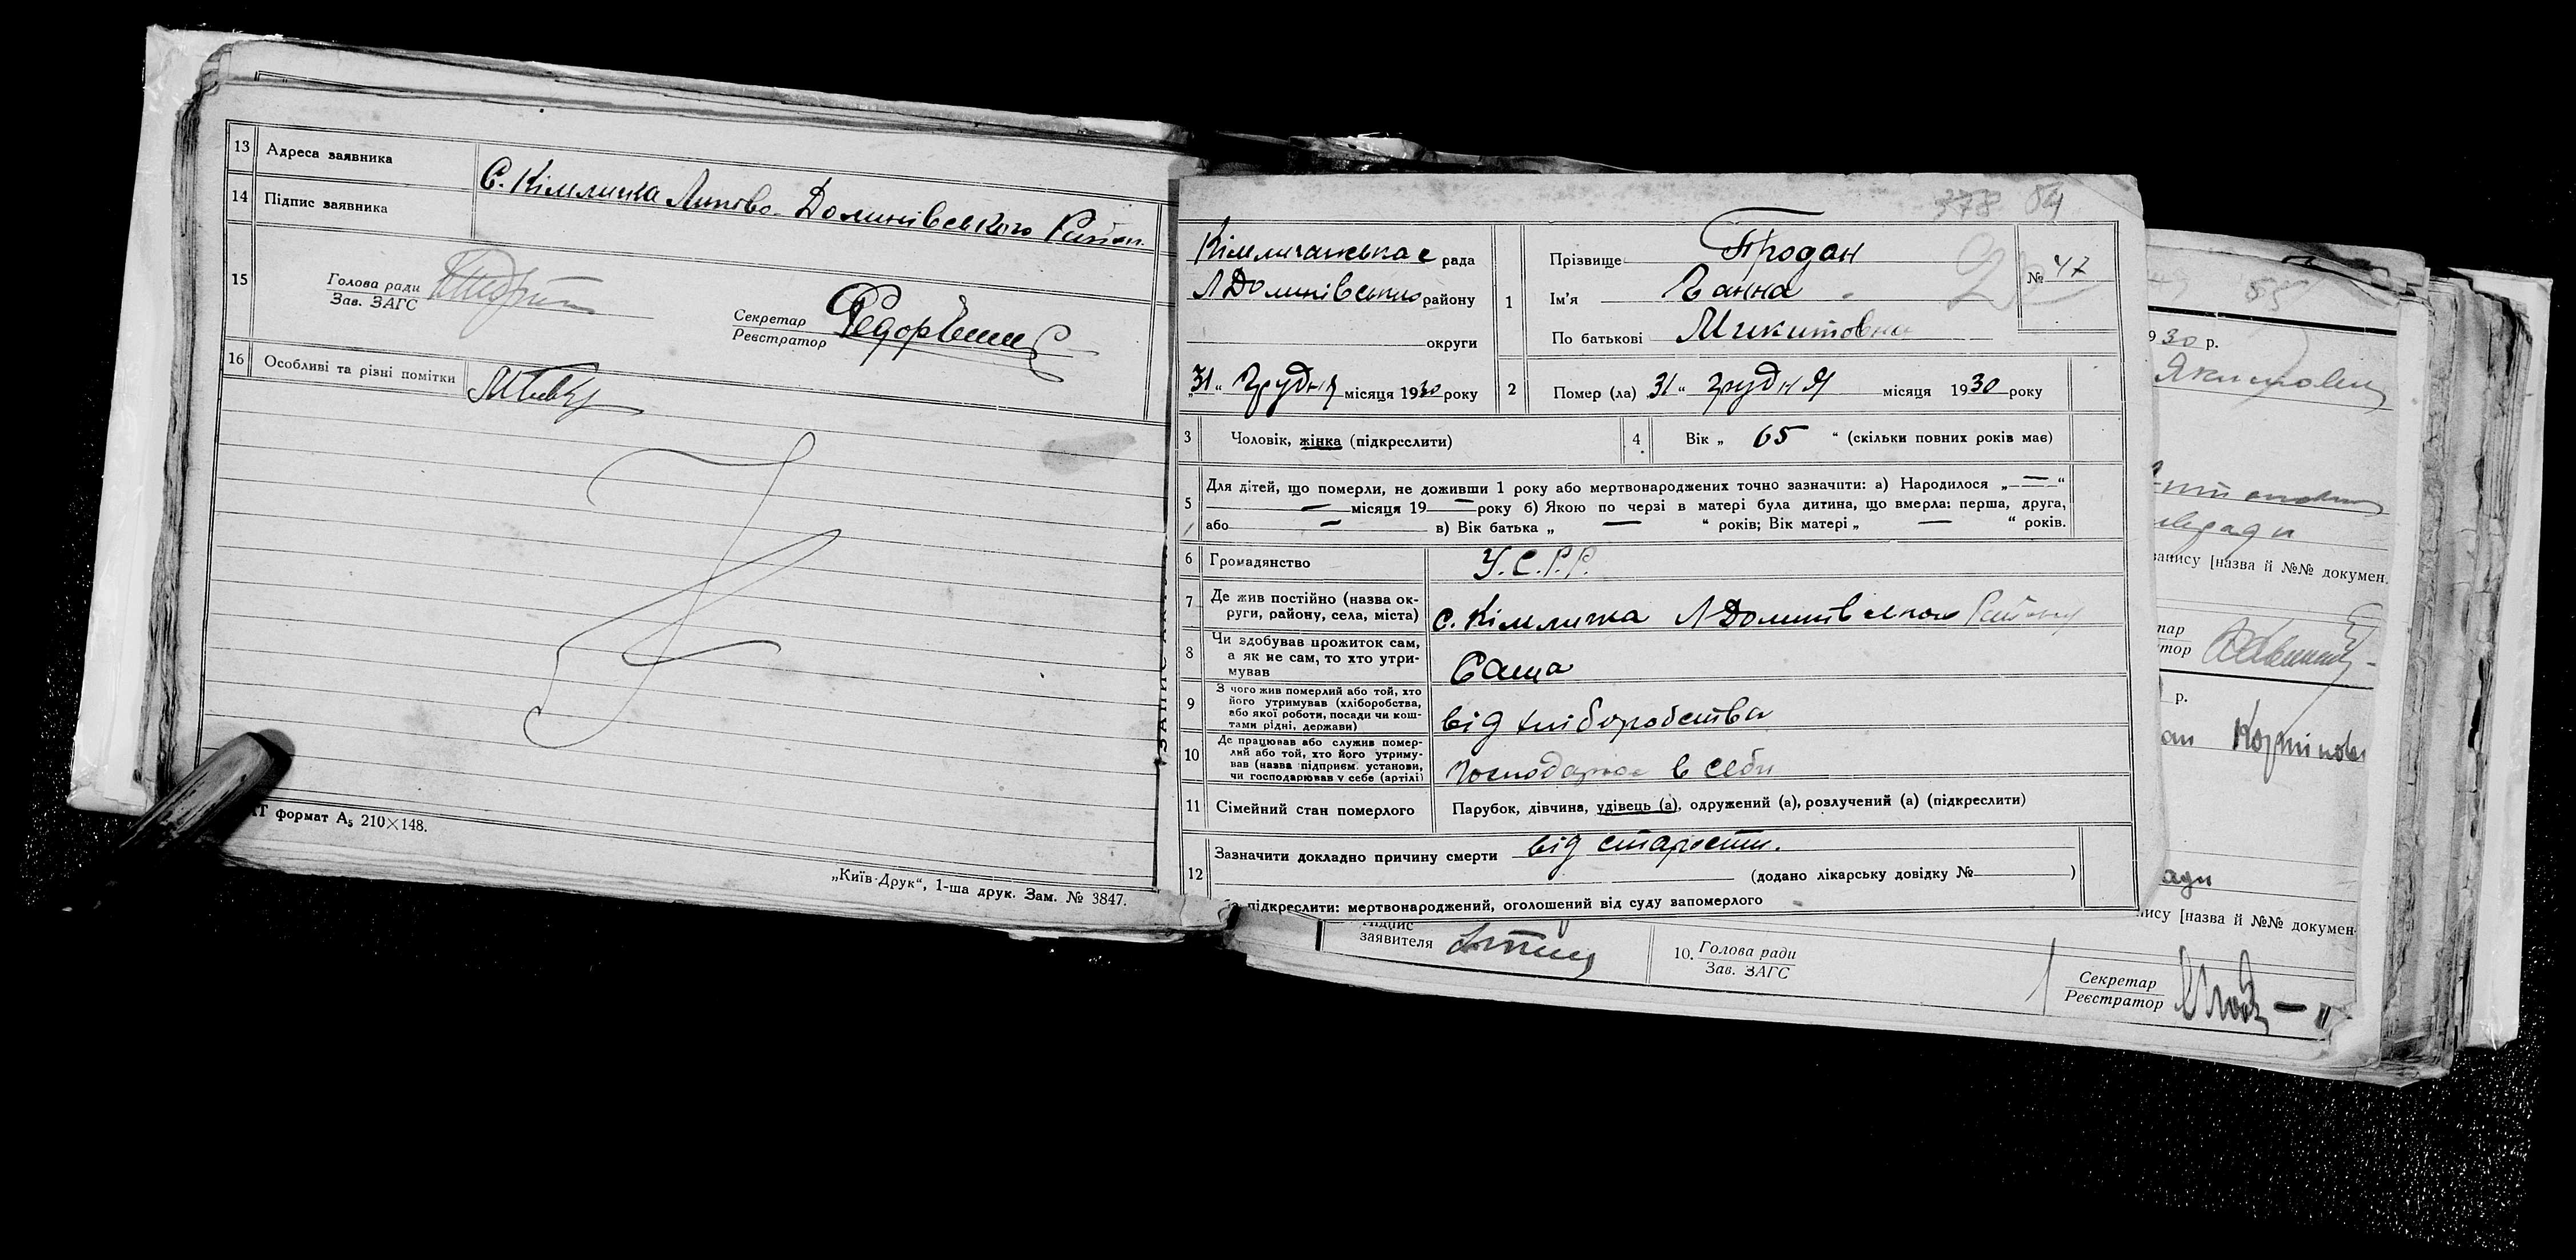 13 Адреса заявника
С. Кімличка Липово-Долинівського Район.
14 Підпис заявника
15
Голова ради
Зав. ЗАГС
Секретар
Реєстратор
16 Особливі та різні помітки
формат А5 210×148.
„Київ-Друк“, 1-ша друк. Зам. № 3847.
378 84
рада
ЛДолинівського району
округи
„31“ Грудня місяця 1930 року
1
Прізвище Продан
Ім’я Ганна
По батькові Микитовна
№ 47
2 Помер (ла) 31“ грудня місяця 1930 року
3 Чоловік, жінка (підкреслити)
4 Вік „ 65 “ (скільки повних років має)
5 Для дітей, що померли, не доживши 1 року або мертвонароджених точно зазначити: а) Народилося „—“
— місяця 19 — року б) Якою по черзі в матері була дитина, що вмерла: перша, друга,
або — в) Вік батька „ — “ років; Вік матері „ — “ років.
6 Громадянство У.С.Р.Р.
7 Де жив постійно (назва ок-
руги, району, села, міста) с. Кімличка ЛДолинівського Району
8 Чи здобував прожиток сам,
а як не сам, то хто утри-
мував Сама
9 З чого жив померлий або той, хто
його утримував (хліборобства,
або якої роботи, посади чи кош-
тами рідні, держави) від хліборобства
10 Де працював або служив помер-
лий або той, хто його утриму-
вав (назва підприєм. установи,
чи господарював у себе (артілі) в себи
11 Сімейний стан померлого Парубок, дівчина, удівець (а), одружений (а), розлучений (а) (підкреслити)
12 Зазначити докладно причину смерти від старости.
(додано лікарську довідку № )
підкреслити: мертвонароджений, оголошений від суду запомерлого
Підпис
заявителя
10. Голова ради
Зав. ЗАГС
Секретар
Реєстратор
85
930 р.
запису [назва й №№ докумен.
тар
тор
р.
ади
пису [назва й №№ докумен.